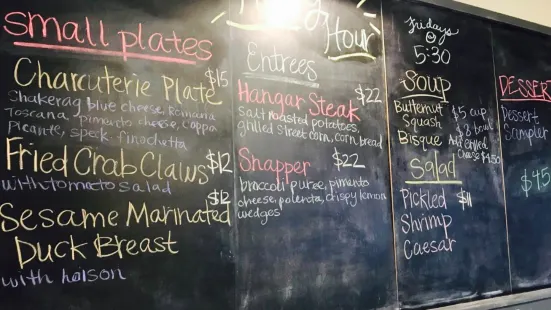 small plates
Charcuterie Plate $15
Shakerag blue cheese, Romania
Toscana, pimento cheese, coppa
Picante, speck, finochetta
Fried Crab Claws $12
with tomato salad
Sesame Marinated $12
Duck Breast
with hoison
Hour
Entrees
Hangar Steak $22
Salt roasted potatoes,
grilled street corn, corn bread
Snapper $22
broccoli puree, pimento
cheese, polenta, crispy lemon
wedges
Fridays
@
5:30
Soup
Butternut $5 cup
Squash $8 bowl
Bisque Add grilled
cheese $1.50
Salad
Pickled $11
Shrimp
Caesar
DESSERT
Dessert
Sampler